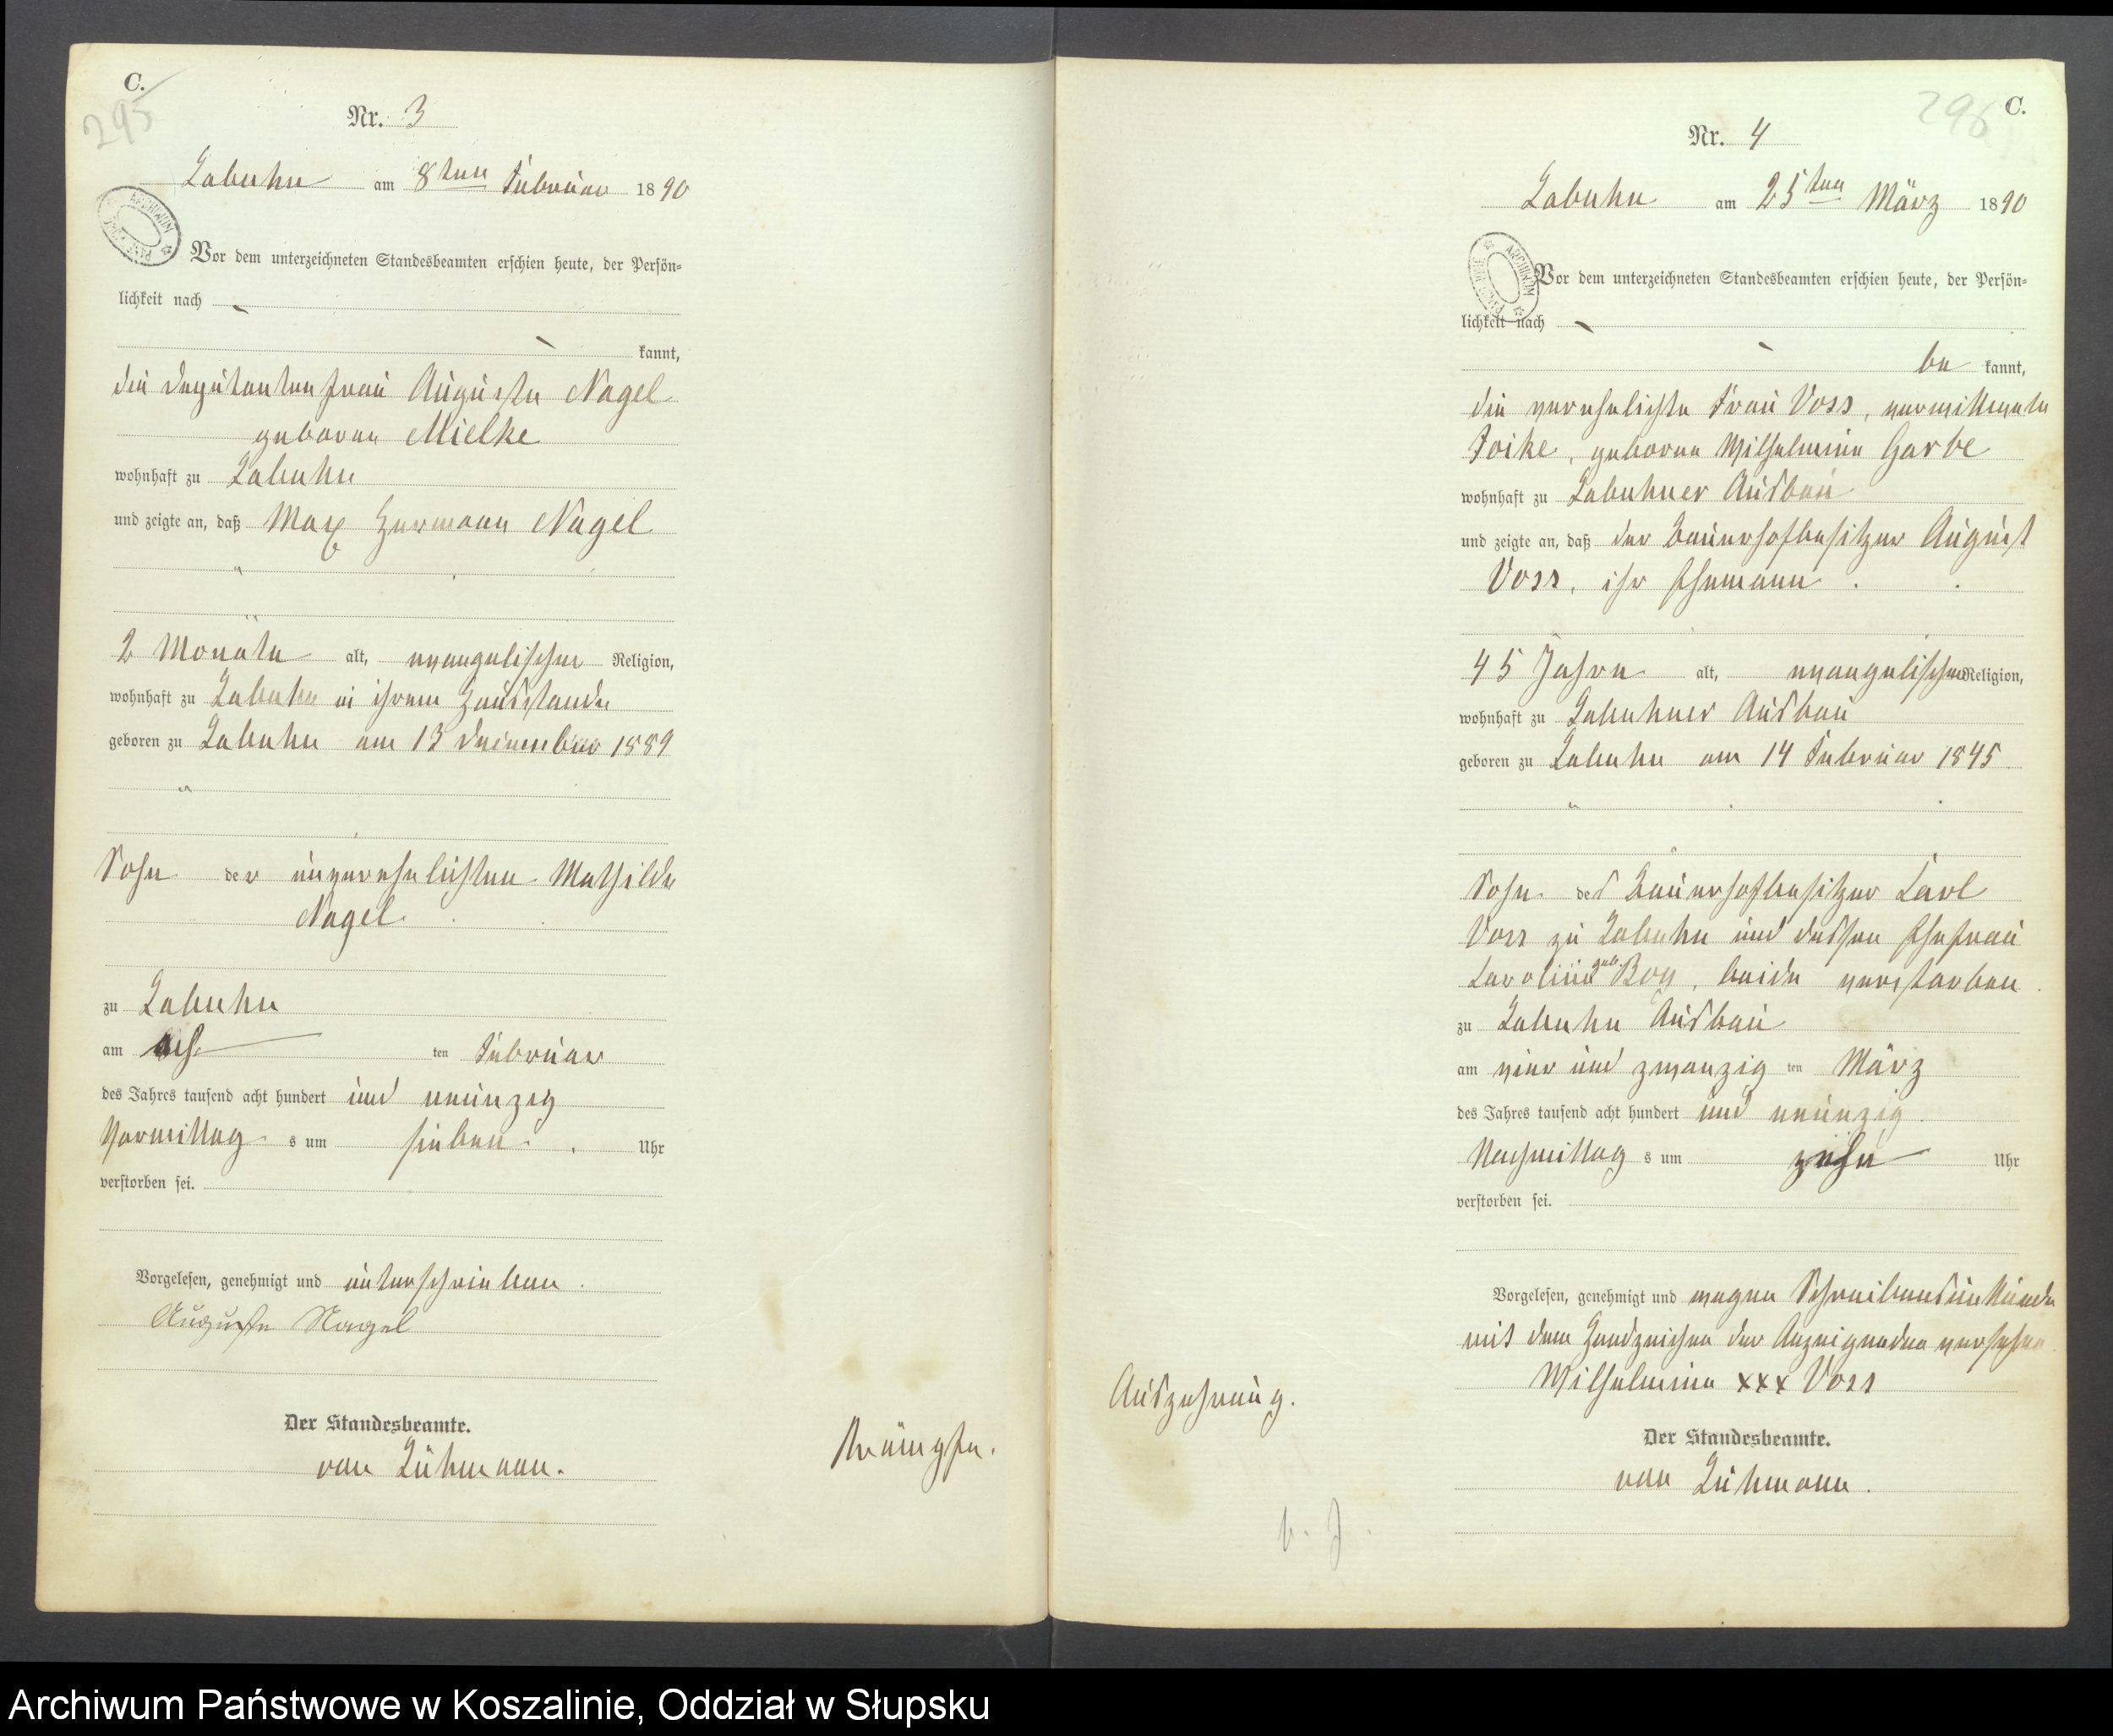 C.
295
Nr. 3
Labuhn am 8ten Februar 1890
Vor dem unterzeichneten Standesbeamten erschien heute, der Persön=
lichkeit nach
kannt,
die Deputantenfrau Auguste Nagel
geborene Mielke
wohnhaft zu Labuhn
und zeigte an, daß Max Hermann Nagel
2 Monate alt, evangelischer Religion,
wohnhaft zu Labuhn in ihrem Hausstande
geboren zu Labuhn am 13 Dezember 1889
Sohn der unverehelichten Mathilde
Nagel
zu Labuhn
am acht ten Februar
des Jahres tausend acht hundert und neunzig
Vormittags um sieben Uhr
verstorben sei.
Vorgelesen, genehmigt und unterschrieben.
Auguste Nagel
Der Standesbeamte.
von Lühmann.
Krämpfe.
C.
296
Nr. 4
Labuhn am 25ten März 1890
Vor dem unterzeichneten Standesbeamten erschien heute, der Persön=
lichkeit nach
be kannt,
die verehelichte Frau Voss, verwittwete
Foike, geborene Wilhelmine Garbe
wohnhaft zu Labuhner Ausbau
und zeigte an, daß der Bauerhofbesitzer August
Voss, ihr Ehemann
45 Jahre alt, evangelischer Religion,
wohnhaft zu Labuhner Ausbau
geboren zu Labuhn am 14 Februar 1845
Sohn des Bauerhofbesitzer Carl
Voss zu Labuhn und dessen Ehefrau
Caroline geb. Boy, beide verstorben
zu Labuhn Ausbau
am vier und zwanzig ten März
des Jahres tausend acht hundert und neunzig
Nachmittags um zehn Uhr
verstorben sei.
Vorgelesen, genehmigt und wegen Schreibensunkunde
mit dem Handzeichen der Anzeigenden versehen
Wilhelmine xxx Voss
Der Standesbeamte.
von Lühmann.
Auszehrung.
v. J.
Archiwum Państwowe w Koszalinie, Oddział w Słupsku